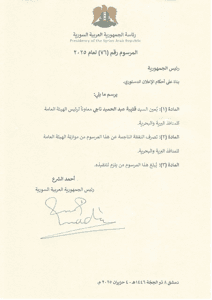 رئاسة الجمهورية العربية السورية
Presidency of the Syrian Arab Republic
المرسوم رقم (٧٦) لعام ٢٠٢٥
رئيس الجمهورية
بناءً على أحكام الإعلان الدستوري.
يرسم ما يلي:
المادة (١): يُعيّن السيد قتيبة عبد الحميد ناجي معاوناً لرئيس الهيئة العامة
للمنافذ البرية والبحرية.
المادة (٢): تُصرف النفقة الناجمة عن هذا المرسوم من موازنة الهيئة العامة
للمنافذ البرية والبحرية.
المادة (٣): يُبلّغ هذا المرسوم من يلزم لتنفيذه.
أحمد الشرع
رئيس الجمهورية العربية السورية
دمشق ٨ ذو الحجة ١٤٤٦هـ، ٤ حزيران ٢٠٢٥ م.